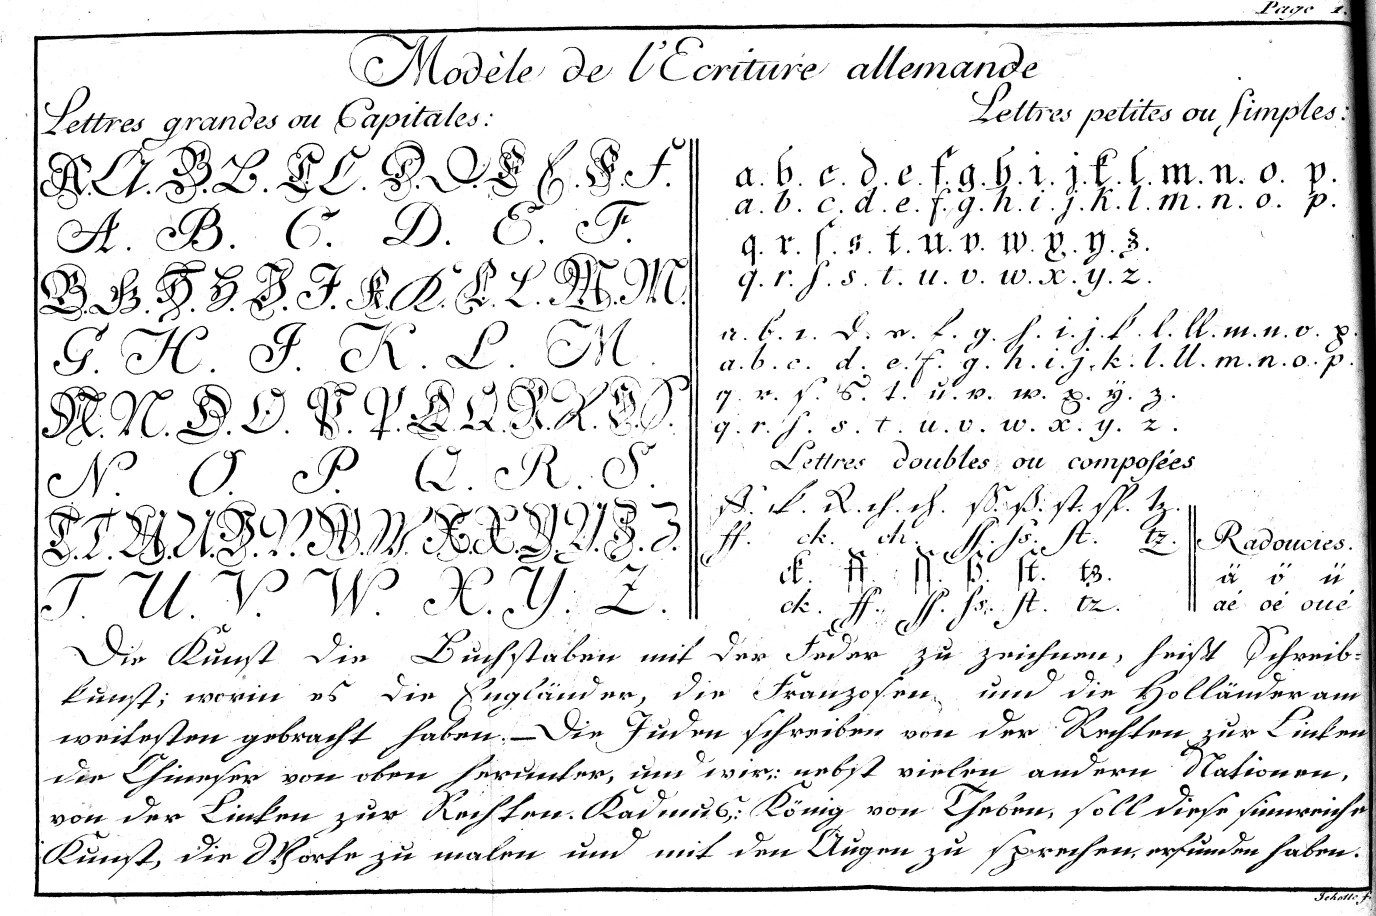 Page 1.
Modèle de l'Ecriture allemande
Lettres grandes ou Capitales:
A. A. B. B. C. C. D. D. E. E. F. F.
A. B. C. D. E. F.
G. G. H. H. I. I. K. K. L. L. M. M.
G. H. I. K. L. M.
N. N. O. O. P. P. Q. Q. R. R. S. S.
N. O. P. Q. R. S.
T. T. U. U. V. V. W. W. X. X. Y. Y. Z. Z.
T. U. V. W. X. Y. Z.
Lettres petites ou ſimples:
a. b. c. d. e. f. g. h. i. j. k. l. m. n. o. p.
a. b. c. d. e. f. g. h. i. j. k. l. m. n. o. p.
q. r. ſ. s. t. u. v. w. x. y. z.
q. r. ſ. s. t. u. v. w. x. y. z.
a. b. c. d. e. f. g. h. i. j. k. l. ll. m. n. o. p.
a. b. c. d. e. f. g. h. i. j. k. l. ll. m. n. o. p.
q. r. ſ. s. t. u. v. w. x. ÿ. z.
q. r. ſ. s. t. u. v. w. x. y. z.
Lettres doubles ou compoſées
ff. ck. ch. ch. ſſ. ß. ſt. tz.
ff. ck. ch. ſſ. ſs. ſt. tz.
ck. ff. ſſ. ß. ſt. tz.
ck. ff. ſſ. ſs. ſt. tz.
Radoucies.
ä ö ü
aé oé oué
Die Kunſt die Buchſtaben mit der Feder zu zeichnen, heißt Schreib=
kunſt; worin es die Engländer, die Franzoſen und die Holländer am
weiteſten gebracht haben. — Die Juden ſchreiben von der Rechten zur Linken
die Chineſer von oben herunter, und wir: nebſt vielen andern Nationen,
von der Linken zur Rechten. Kadmus,: König von Theben, ſoll dieſe ſinnreiche
Kunſt, die Worte zu malen und mit den Augen zu ſprechen, erfunden haben.